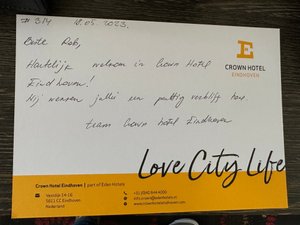 # 314 12.05.2023.
Beste Rob,
Hartelijk welkom in Crown Hotel
Eindhoven!
Wij wensen jullie een prettig verblijf toe
team Crown hotel Eindhoven
E
CROWN HOTEL
EINDHOVEN
Love City Life
Crown Hotel Eindhoven | part of Eden Hotels
Vestdijk 14-16
5611 CC Eindhoven
Nederland
+31 (0)40 844 4000
info.crown@edenhotels.nl
www.crownhoteleindhoven.com